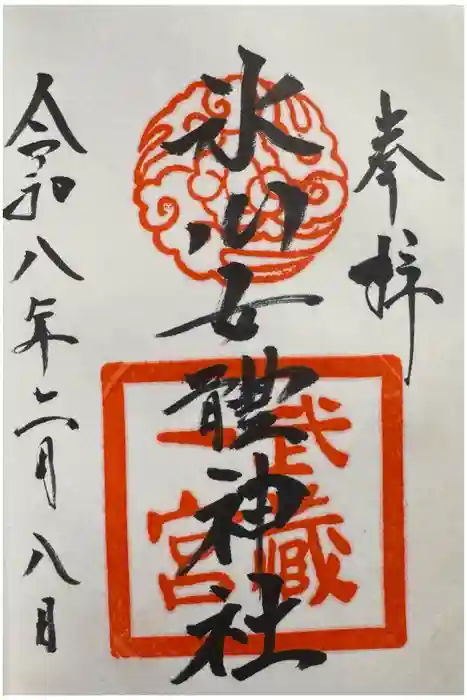 奉拝
氷川女體神社
武蔵
一宮
令和八年六月八日